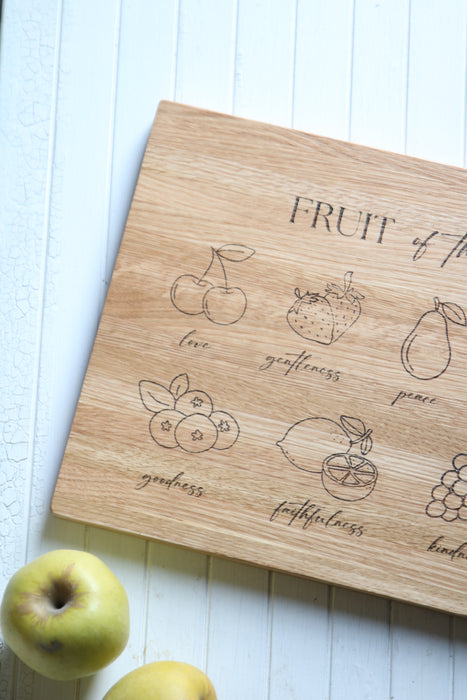 FRUIT of th
love
gentleness
peace
goodness
faithfulness
kindn